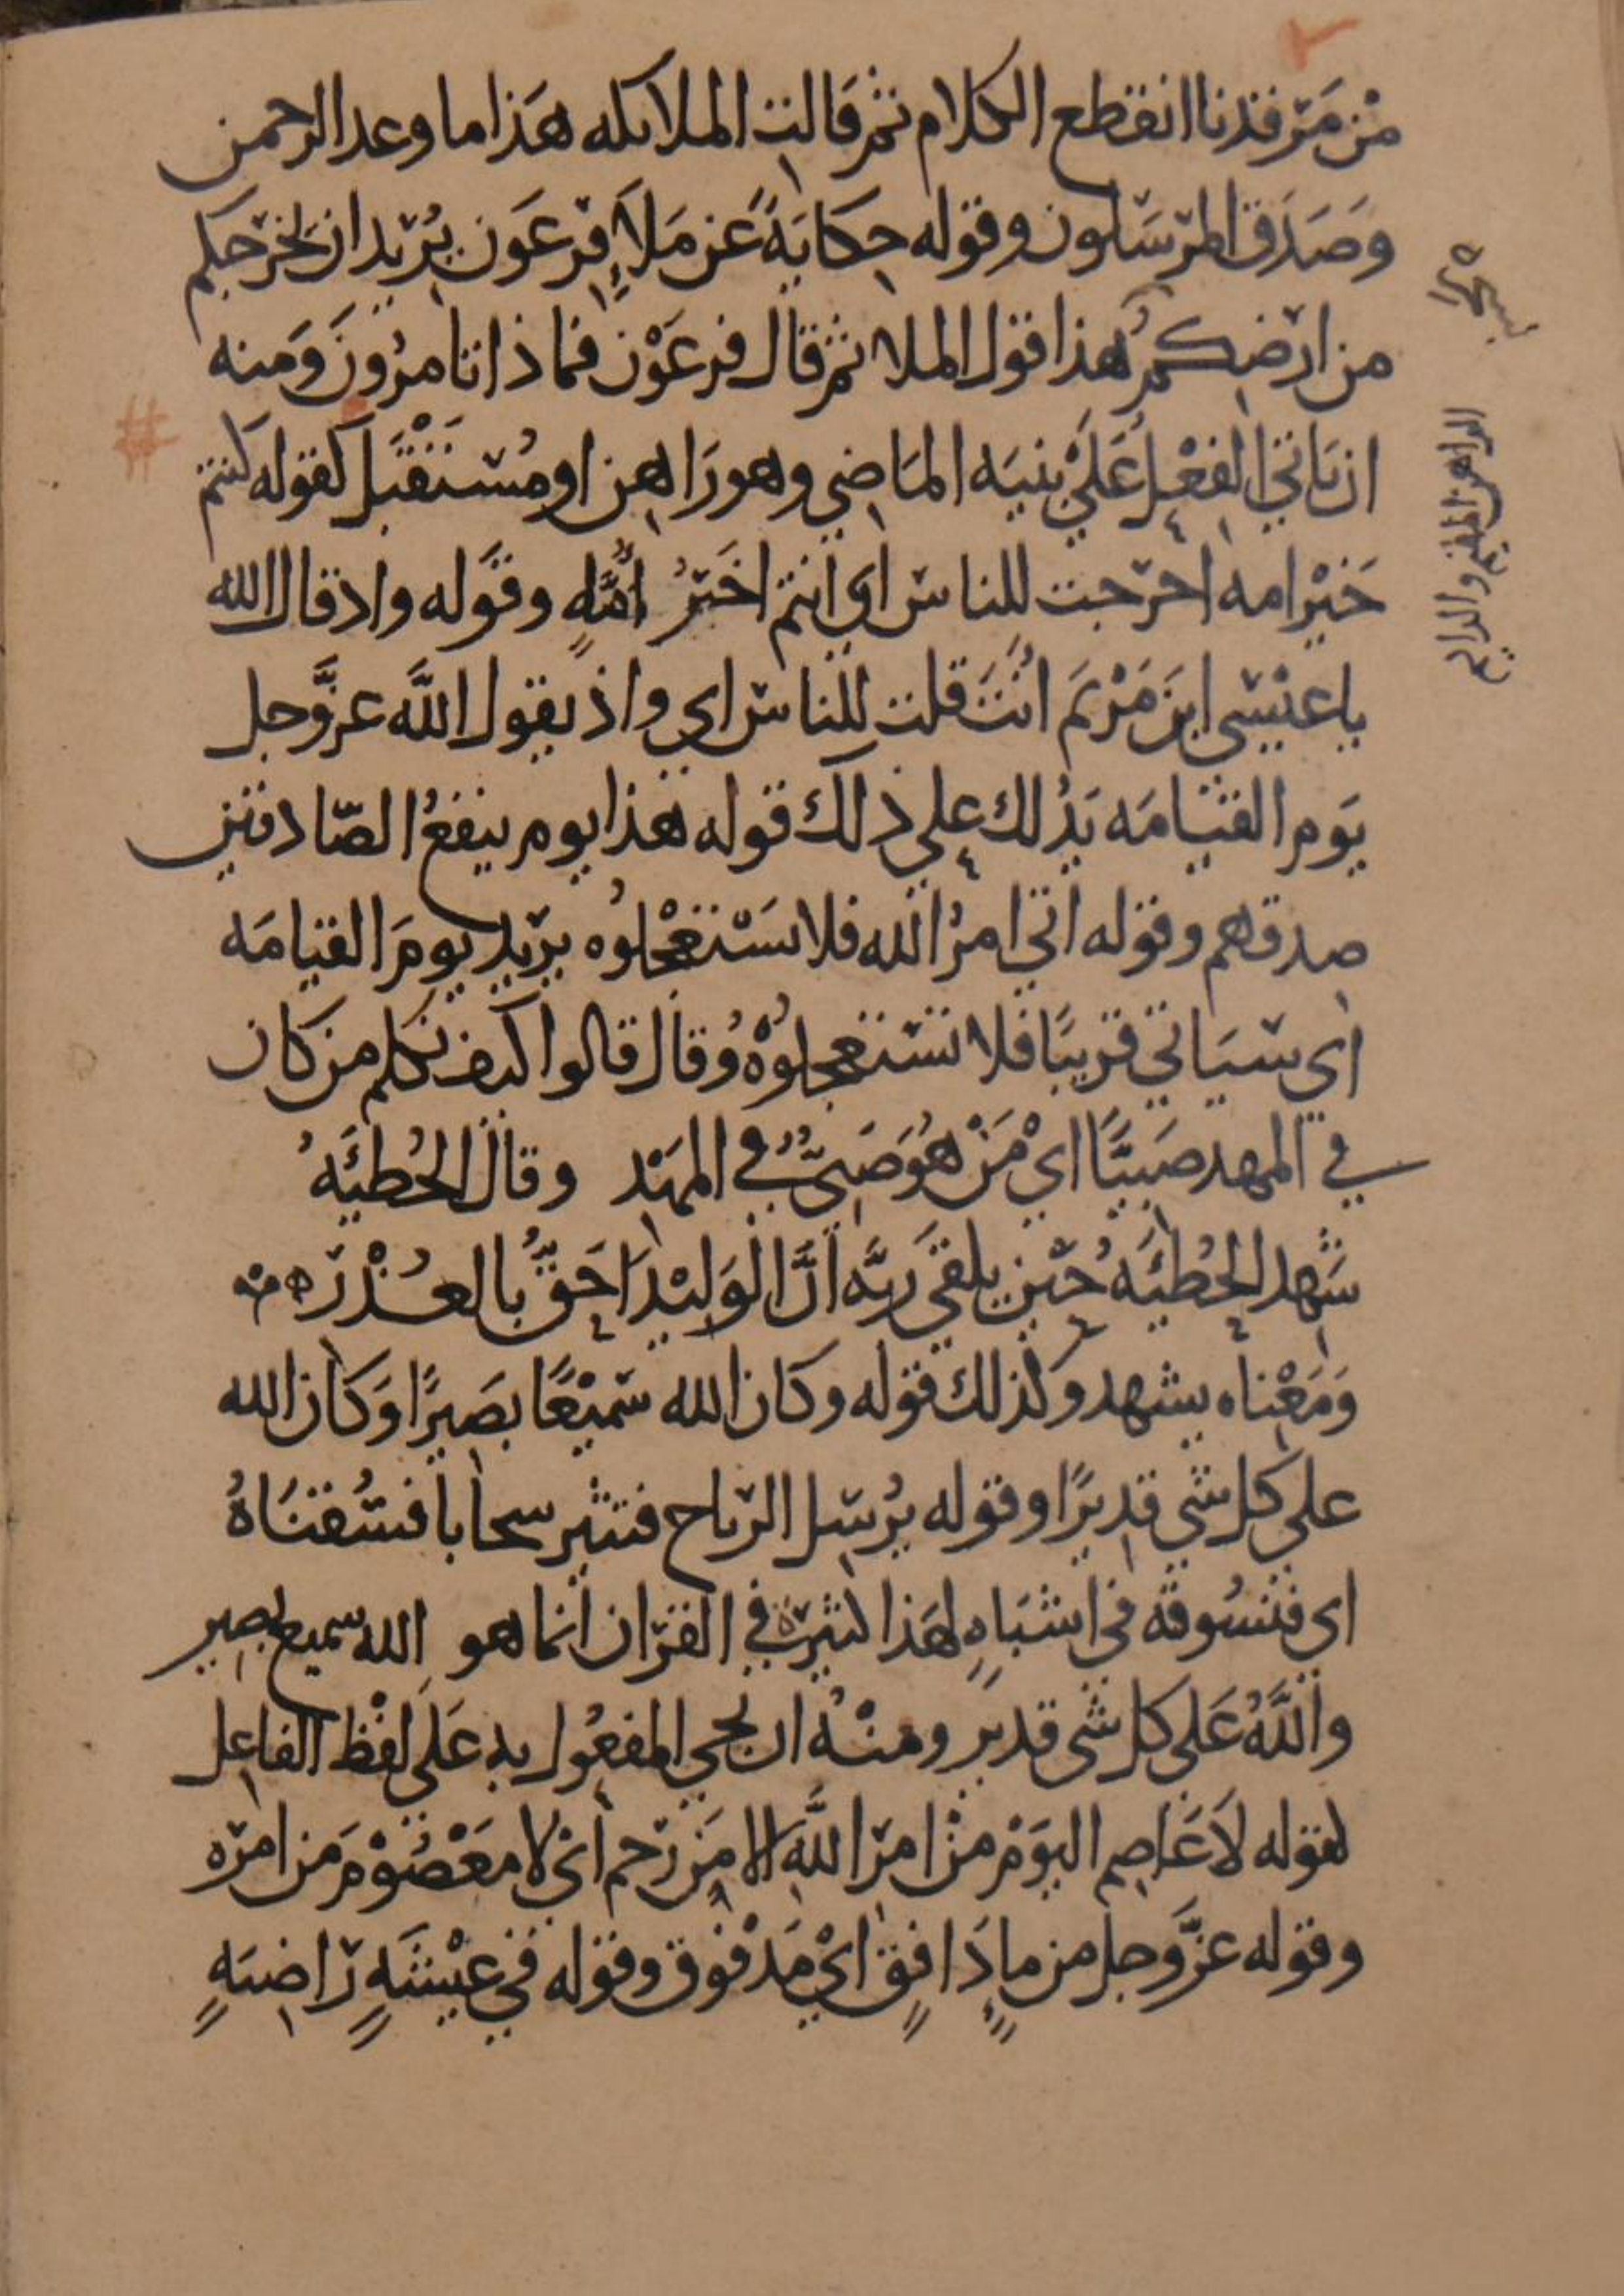 مْن مَرقدنا انقطع الكلام ثم قالت الملائكه هَذا ما وعد الرحمن
وَصَدَق المرسَلون وقوله حِكايَةً عَن مَلأِ فِرعَون يُريد ان يخرجكم
من ارضكمُ هذا قول الملا ثم قال فرعَوْن فماذا تامرُونَ وَمنه
ان يَاتي الفعْل عَلَيْ بنيَه الماَضِي وهو رَاهِن او مُسْتَقْبَل كقوله كنتم
خَيْر امه اخرجت للناس اي انتم خَيْرُ اُمَّةٍ وقَوله واذ قال الله
يا عيْسى ابنَ مَرْيَم اَنْتَ قلت للناس اي واذ يقول اللَّه عزَّوجل
يَوم القيامَه يَدُلك علي ذلك قوله هَذا يوم ينفعُ الصّادقين
صِدقهم وقوله اتي امرُ الله فلا تسَتعْجلوُه يريد يومَ القيامَه
اي سيَاتي قريبًا فلا تستعجلوُهْ وُقال قالوا كيف نكلم من كان
في المهد صَبيًّا ايْ مَنْ هُوَ صَبيٌّ في المهَد وقال الحُطيَه
شَهد الحُطيئَه حُيْن يلقي رَبَّه انَّ الوَليْدَ احَقُّ بالعُذْر
وَمَعْناه يشهد وكذلك قوله وكان الله سَميْعًا بصَيرًا وَكان الله
علي كل شي قديرًا وقوله يُرسل الرياح فتثير سحابا فسُقنَاهُ
اي فنسُوقه في اشبَاهٍ لهَذا كثيرة في القرآن انما هو الله سميع بصير
واللَّهُ عَلى كل شي قدير ومنْهُ ان يجي المفعُول به عَلَى لفظ الفاعِل
كقوله لاَ عَاصِم اليَوْم مِنْ امر اللَّه الا من رَحم ايْ لا مَعْصُوْمَ من امره
وقوله عزَّ وجل من ماءٍ دَافِقٍ ايْ مَدْفُوق وقوله في عيْشَةٍ رَاضيَةٍ
الراهن المقيم والدايم